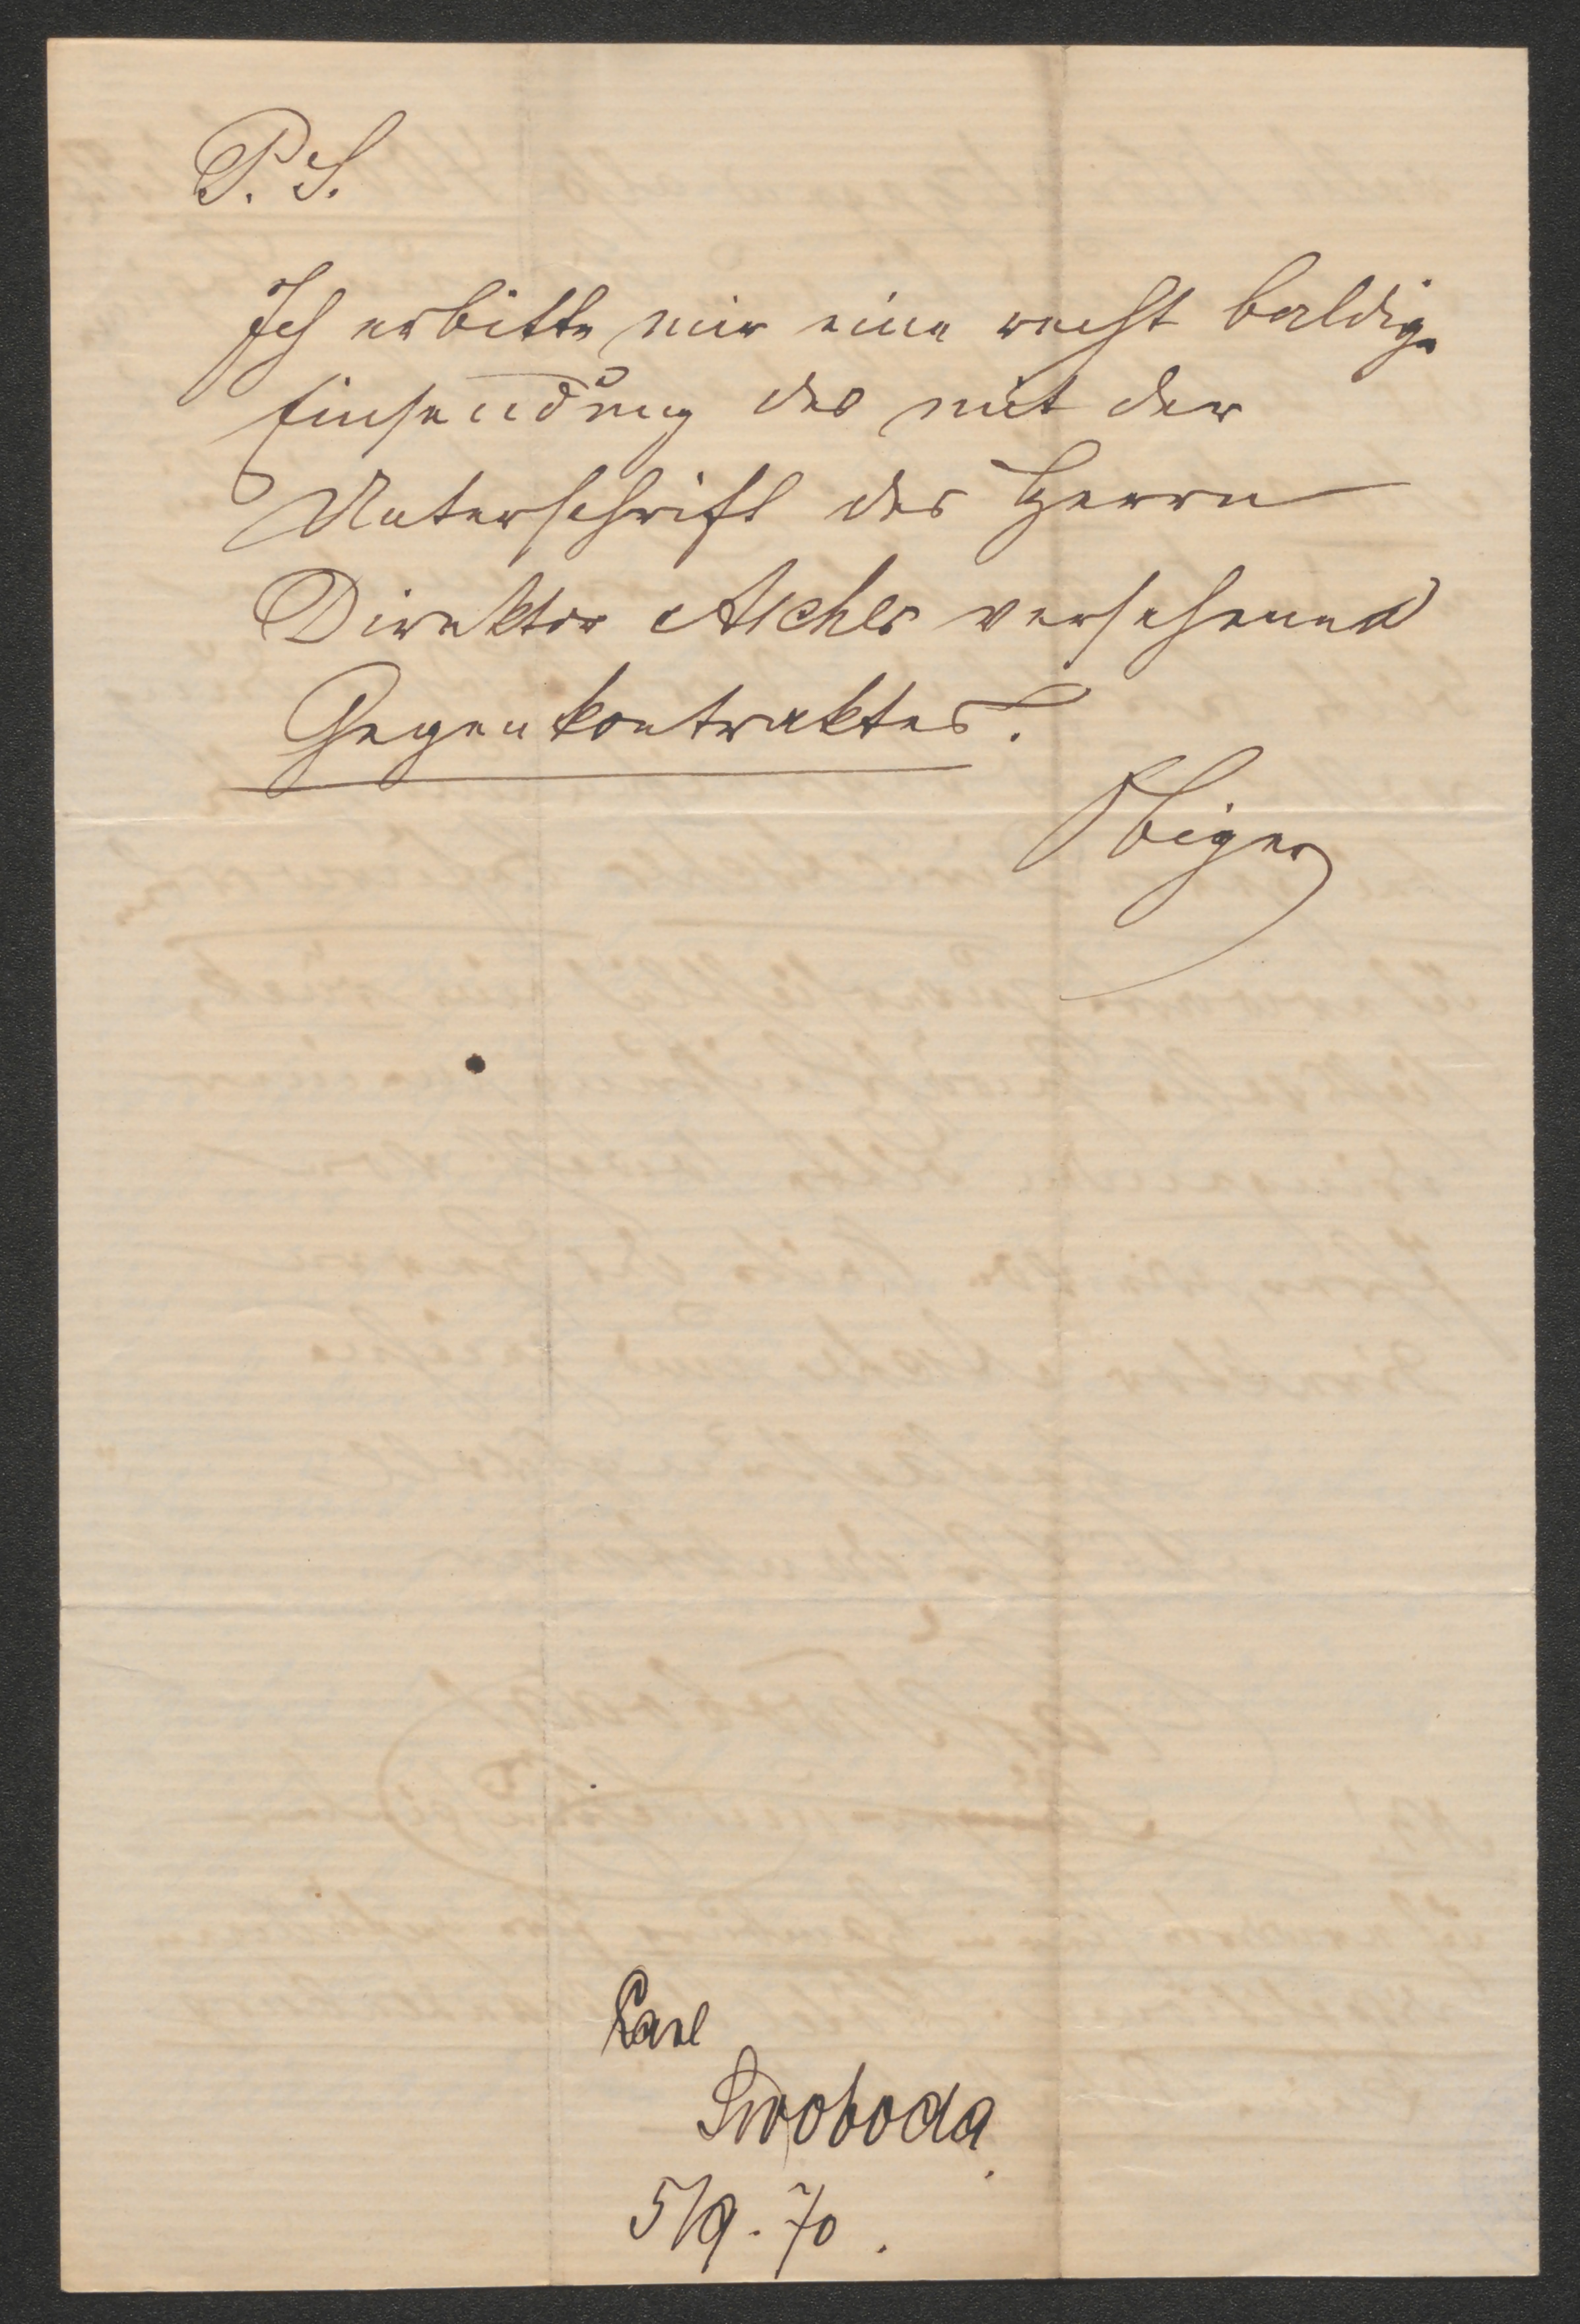 P. S.
Ich erbitte mir eine recht baldige
Einsendung des mit der
Unterschrift des Herrn
Direktor Ascher versehenen
Gegenkontraktes.
Obiger
Karl
Swoboda
5/9. 70.